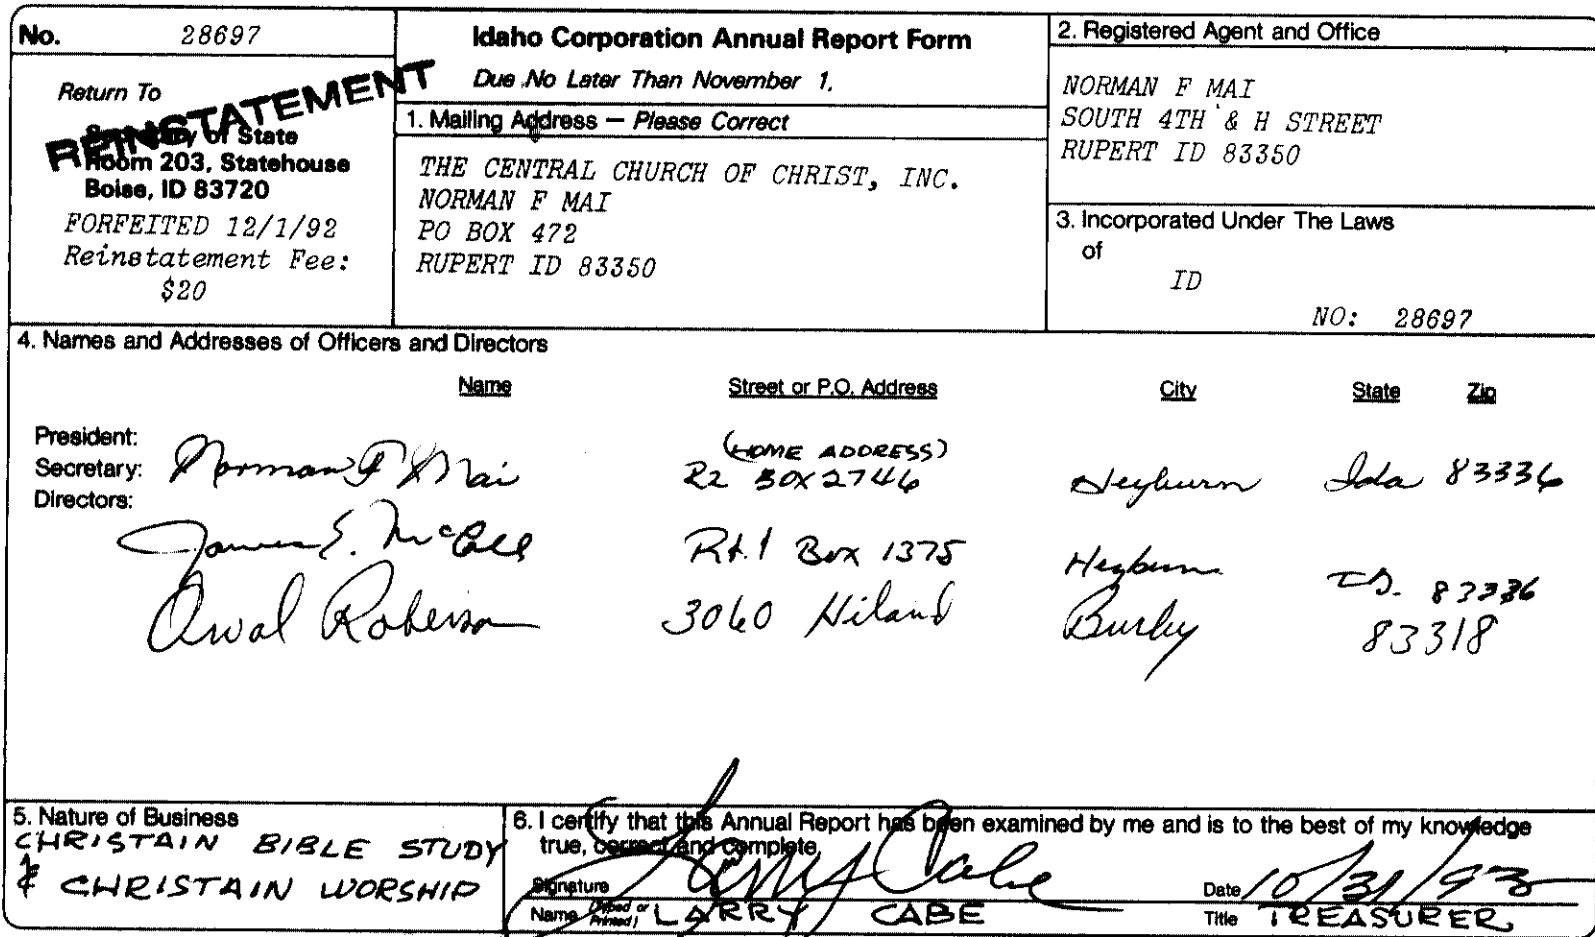 No. 28697
Return To
REINSTATEMENT
Secretary of State
Room 203, Statehouse
Boise, ID 83720
FORFEITED 12/1/92
Reinstatement Fee:
$20
Idaho Corporation Annual Report Form
Due No Later Than November 1.
1. Mailing Address — Please Correct
THE CENTRAL CHURCH OF CHRIST, INC.
NORMAN F MAI
PO BOX 472
RUPERT ID 83350
2. Registered Agent and Office
NORMAN F MAI
SOUTH 4TH & H STREET
RUPERT ID 83350
3. Incorporated Under The Laws
of
ID
NO: 28697
4. Names and Addresses of Officers and Directors
Name Street or P.O. Address City State Zip
President:
(HOME ADDRESS)
Secretary: Norman F Mai R2 BOX 2746 Heyburn Ida 83336
Directors:
James E. McCall Rt. 1 Box 1375 Heyburn ID. 83336
Orval Roberson 3060 Hiland Burley 83318
5. Nature of Business
CHRISTAIN BIBLE STUDY
& CHRISTAIN WORSHIP
6. I certify that this Annual Report has been examined by me and is to the best of my knowledge
true, correct and complete.
Signature Larry Cabe Date 10/31/93
Name (Typed or Printed) LARRY CABE Title TREASURER